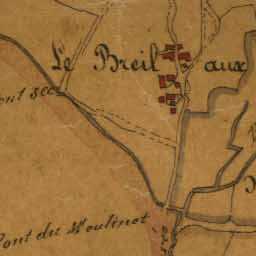 Le Breil aux
ont sec
Pont du Moulinet